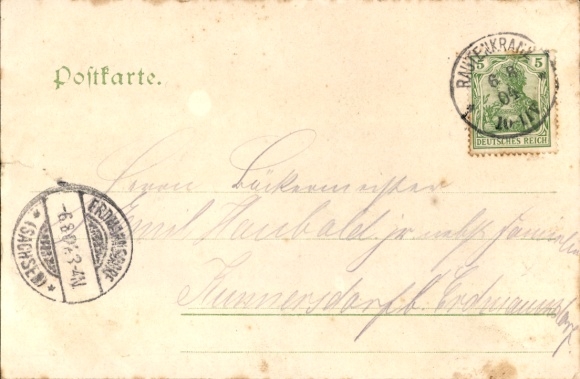 Postkarte.
RAUTENKRANZ
6 8
04
10-11V
5 5
DEUTSCHES REICH
ERDMANNSDORF
-6.8.04. 3-4N
*(SACHSEN)*
Herrn Bäckermeister
Emil Haubold jr nebst Familie
Kunnersdorf b. Erdmannsdorf